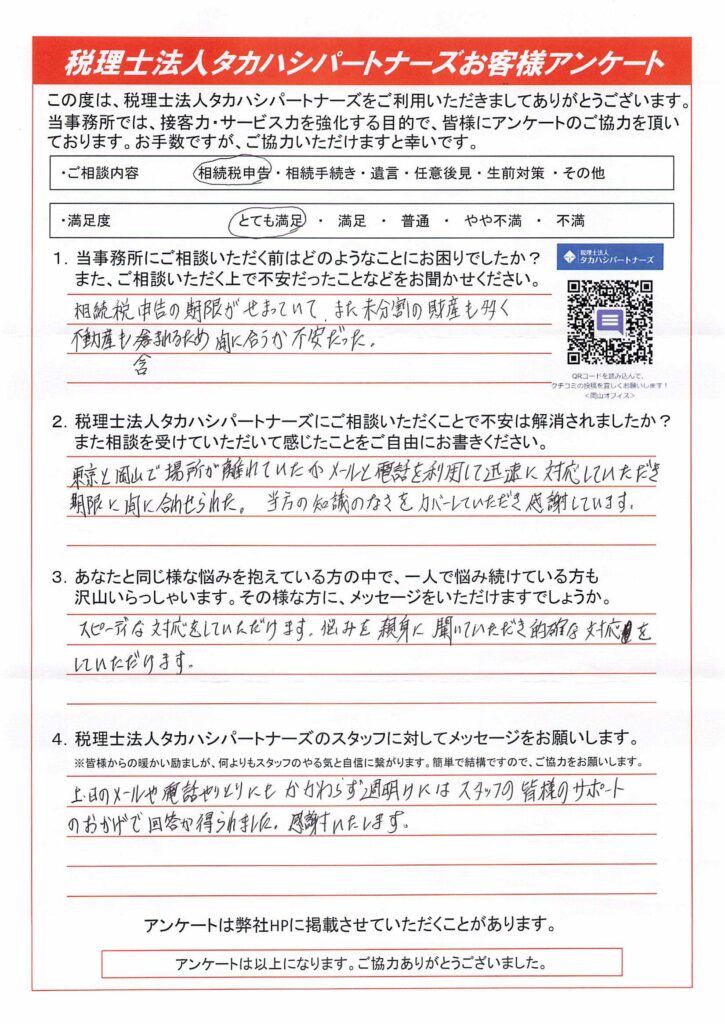 税理士法人タカハシパートナーズお客様アンケート
この度は、税理士法人タカハシパートナーズをご利用いただきましてありがとうございます。
当事務所では、接客力・サービス力を強化する目的で、皆様にアンケートのご協力を頂い
ております。お手数ですが、ご協力いただけますと幸いです。
・ご相談内容 相続税申告・相続手続き・遺言・任意後見・生前対策・その他
・満足度 とても満足 ・ 満足 ・ 普通 ・ やや不満 ・ 不満
1. 当事務所にご相談いただく前はどのようなことにお困りでしたか?
また、ご相談いただく上で不安だったことなどをお聞かせください。
税理士法人
タカハシパートナーズ
相続税申告の期限がせまっていて、また未分割の財産も多く
不動産も含まれるため間に合うか不安だった。
含
QRコードを読み込んで、
クチコミの投稿を宜しくお願いします!
<岡山オフィス>
2. 税理士法人タカハシパートナーズにご相談いただくことで不安は解消されましたか?
また相談を受けていただいて感じたことをご自由にお書きください。
東京と岡山で場所が離れていたがメールと電話を利用して迅速に対応していただき
期限に間に合わせられた。当方の知識のなさをカバーしていただき感謝しています。
3. あなたと同じ様な悩みを抱えている方の中で、一人で悩み続けている方も
沢山いらっしゃいます。その様な方に、メッセージをいただけますでしょうか。
スピーディな対応をしていただけます。悩みを親身に聞いていただき的確な対応を
していただけます。
4. 税理士法人タカハシパートナーズのスタッフに対してメッセージをお願いします。
※皆様からの暖かい励ましが、何よりもスタッフのやる気と自信に繋がります。簡単で結構ですので、ご協力をお願いします。
土日のメールや電話やりとりにもかかわらず週明けにはスタッフの皆様のサポート
のおかげで回答が得られました。感謝いたします。
アンケートは弊社HPに掲載させていただくことがあります。
アンケートは以上になります。ご協力ありがとうございました。